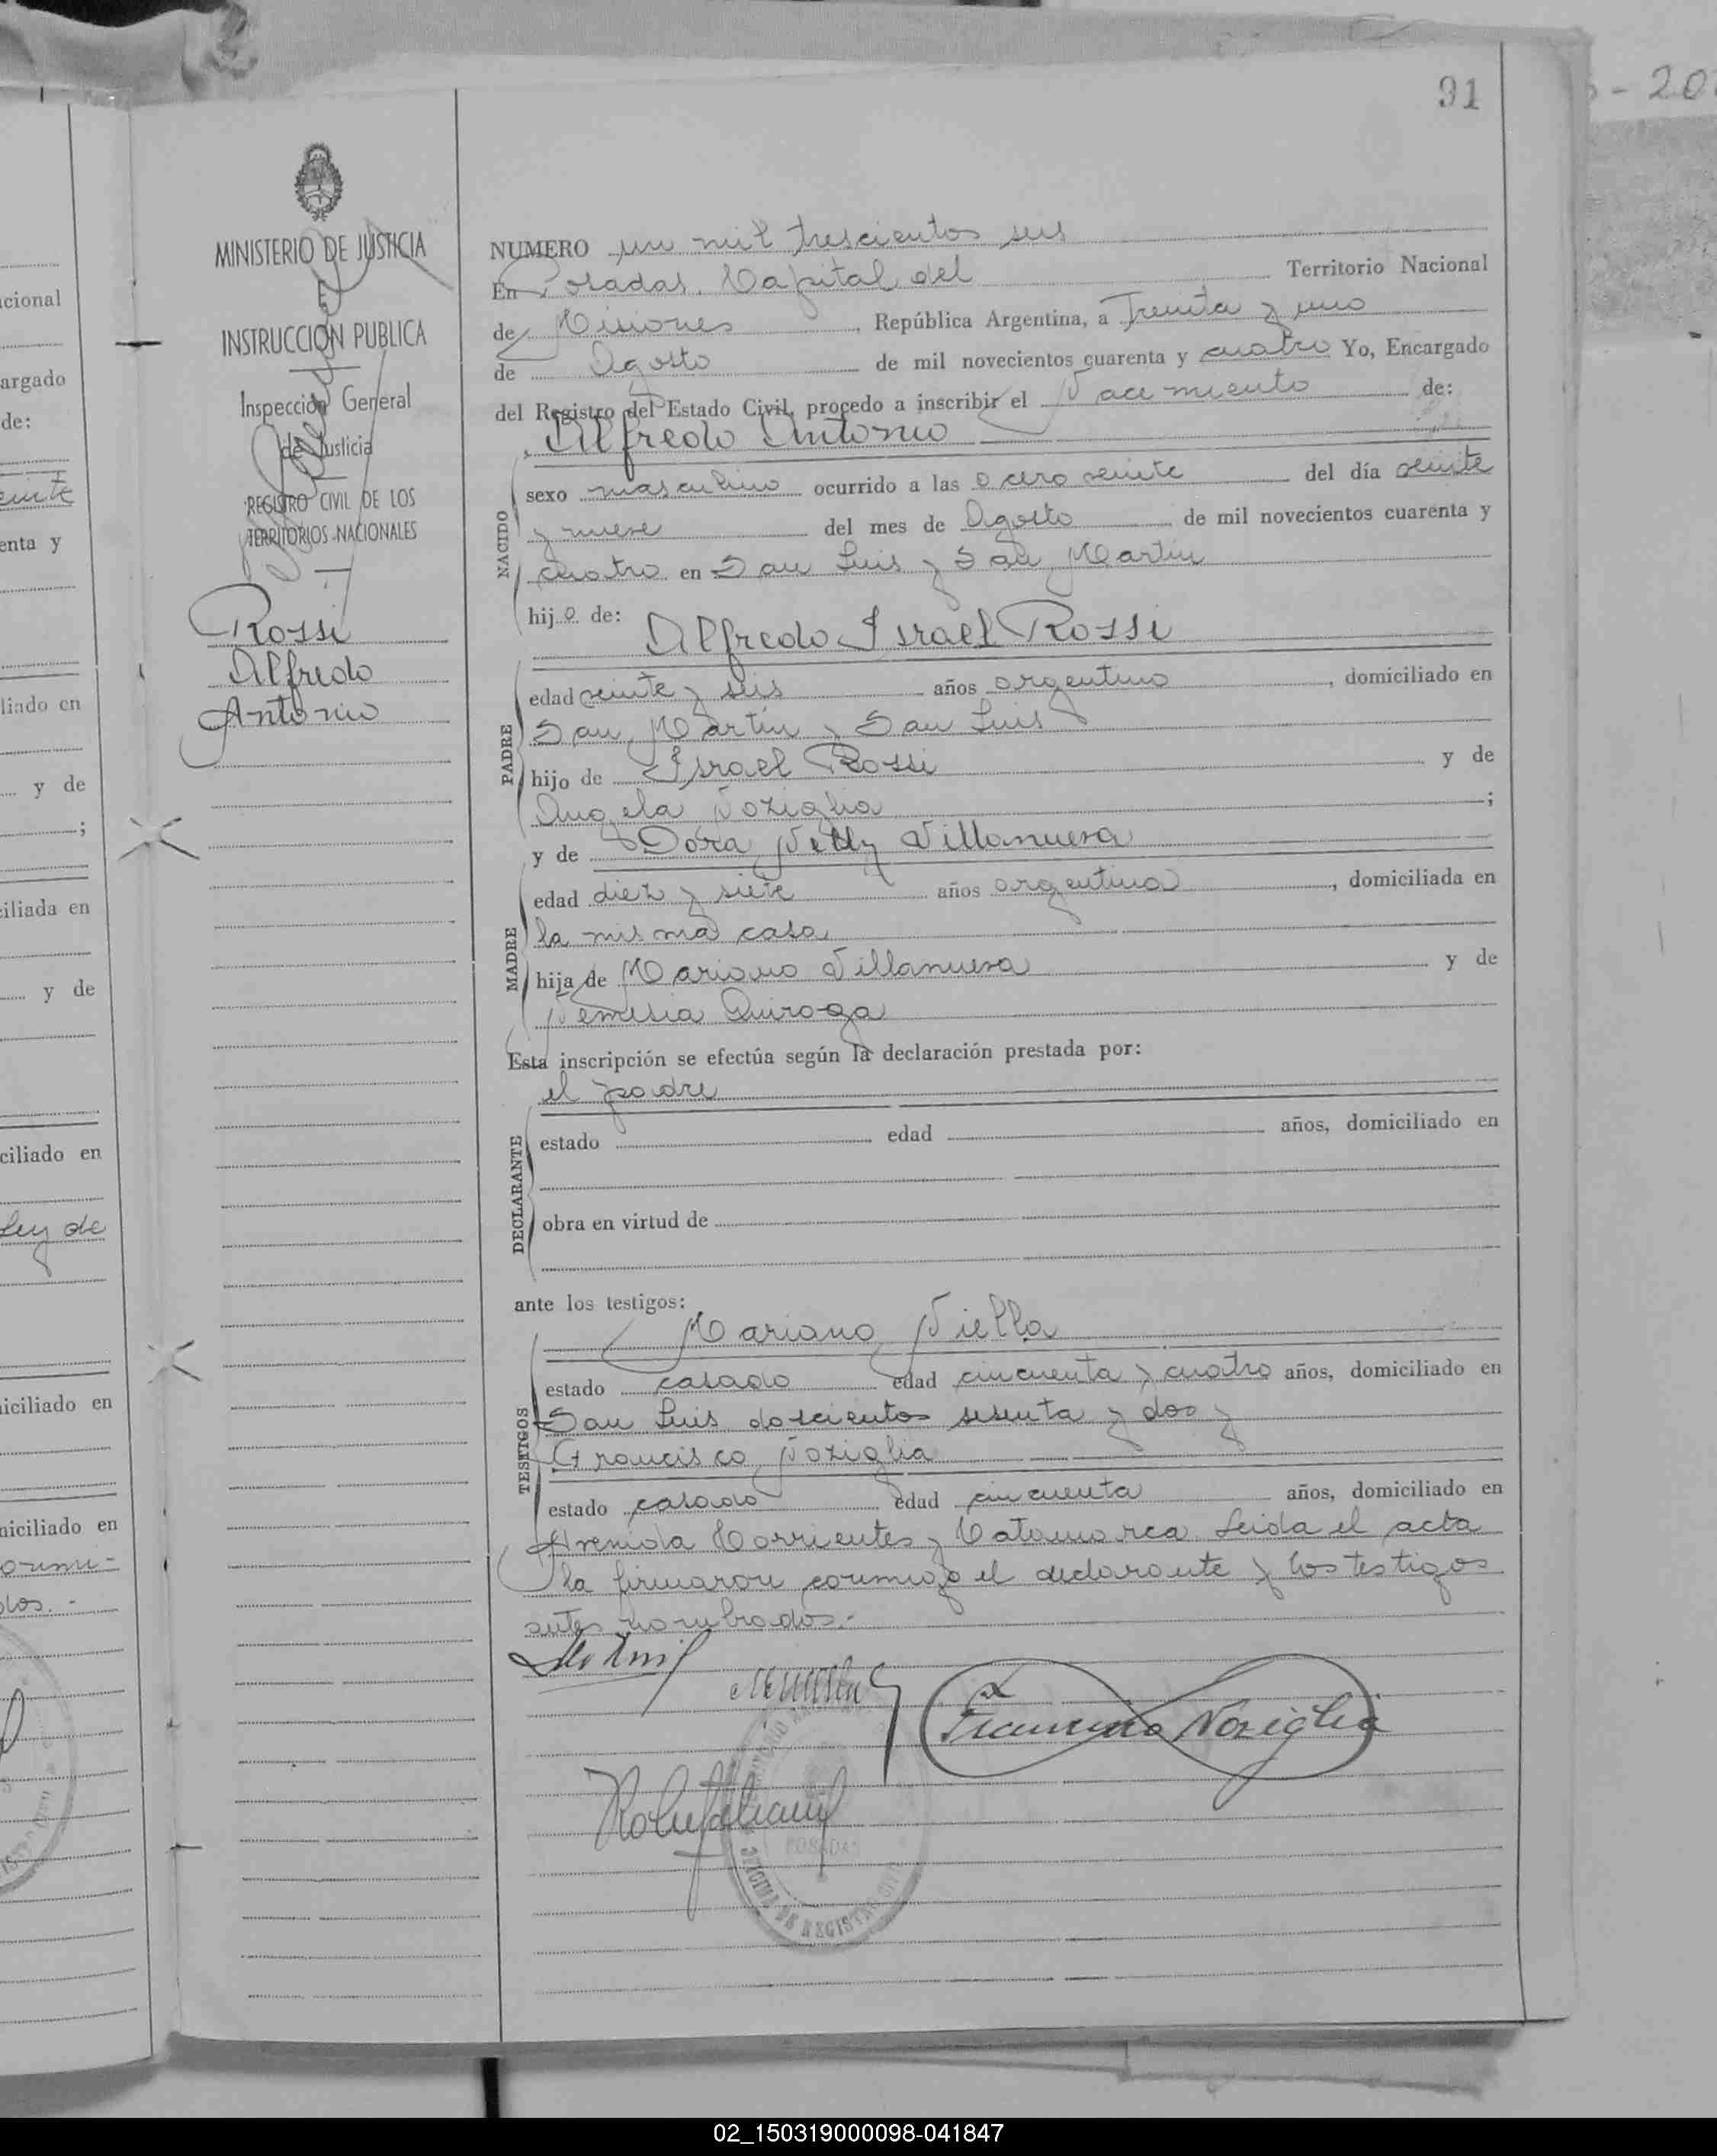 91
- 20
MINISTERIO DE JUSTICIA
INSTRUCCIÓN PUBLICA
Inspección General
de Justicia
REGISTRO CIVIL DE LOS
TERRITORIOS NACIONALES
Rossi
Alfredo
Antonio
NUMERO un mil trescientos seis
En Posadas, Capital del Territorio Nacional
de Misiones, República Argentina, a Treinta y uno
de Agosto de mil novecientos cuarenta y cuatro Yo, Encargado
del Registro del Estado Civil, procedo a inscribir el Nacimiento de:
Alfredo Antonio
NACIDO
sexo masculino ocurrido a las 0 cero veinte del día veinte
y nueve del mes de Agosto de mil novecientos cuarenta y
cuatro en San Luis y San Martin
hijo de:
Alfredo Israel Rossi
PADRE
edad veinte y seis años argentino, domiciliado en
San Martin y San Luis
hijo de Israel Rossi y de
Angela Noziglia;
y de Dora Nelly Villanueva
MADRE
edad diez y siete años argentina, domiciliada en
la misma casa
hija de Mariano Villanueva y de
Nemesia Quiroga
Esta inscripción se efectúa según la declaración prestada por:
el padre
DECLARANTE
estado edad años, domiciliado en
obra en virtud de
ante los testigos:
Mariano Niella
TESTIGOS
estado casado edad cincuenta y cuatro años, domiciliado en
San Luis doscientos sesenta y dos y
Francisco Noziglia
estado casado edad cincuenta años, domiciliado en
Avenida Corrientes y Catamarca. Leida el acta
la firmaron conmigo el declarante y los testigos
antes nombrados.-
Francisco Noziglia
POSADAS
OFICINA DE REGISTRO CIVIL
cional
argado
de:
veinte
enta y
liado en
y de
;
ciliada en
y de
ciliado en
Ley de
iciliado en
niciliado en
dos.-
02_150319000098-041847